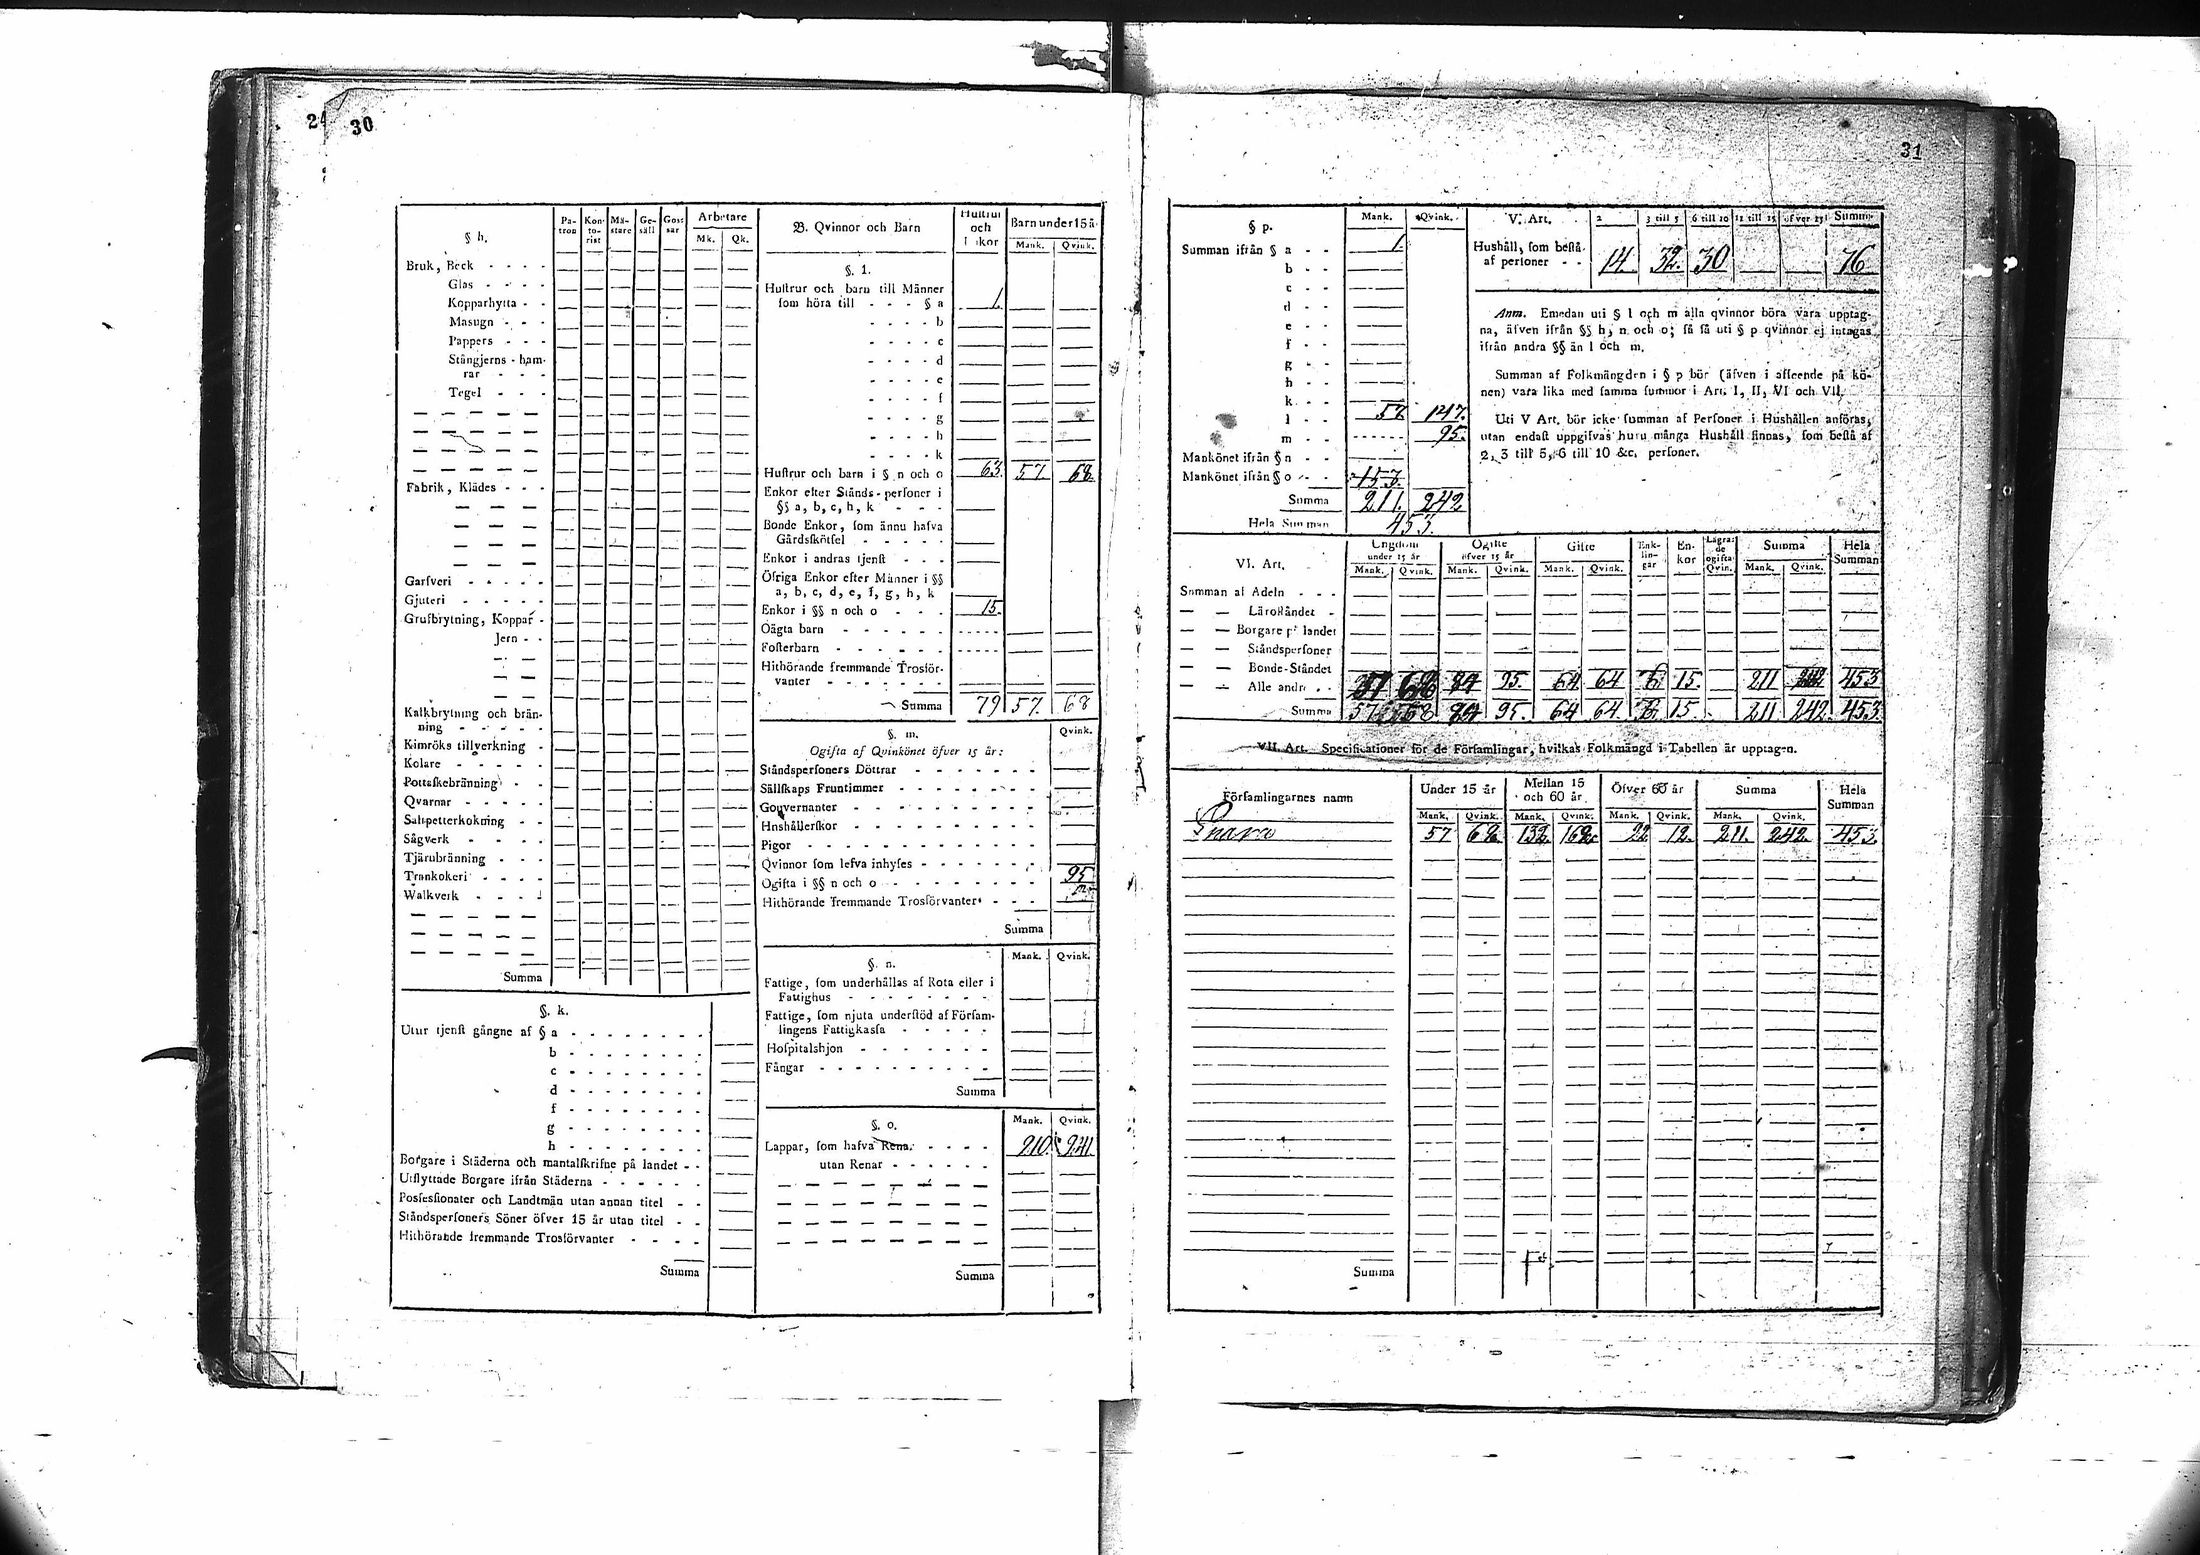 24
30
§ h.
Patron
Kontorist
Mästare
Gesäll
Gossar
Arbetare
Mk. Qk.
Bruk, Beck - - - -
Glas - - - -
Kopparhytta - -
Masugn - - -
Pappers - - -
Stångjerns-hamrar - - -
Tegel - - -
Fabrik, Klädes - - -
Garfveri - - - - -
Gjuteri - - - - -
Grufbrytning, Koppar -
Jern - -
Kalkbrytning och bränning - - - - -
Kimröks tillverkning -
Kolare - - - - -
Pottaskebränning - -
Qvarnar - - - - -
Saltpetterkokning - -
Sågverk - - - -
Tjärubränning - - -
Trankokeri - - - -
Walkverk - - - -
Summa
§. k.
Utur tjenst gångne af § a - - - - - - -
b - - - - - - -
c - - - - - - -
d - - - - - - -
f - - - - - - -
g - - - - - - -
h - - - - - - -
Borgare i Städerna och mantalskrifne på landet - -
Utflyttade Borgare ifrån Städerna - - - - - -
Possessionater och Landtmän utan annan titel - -
Ståndspersoners Söner öfver 15 år utan titel - -
Hithörande fremmande Trosförvanter - - - -
Summa
B. Qvinnor och Barn
Hustrur och Enkor
Barn under 15 å.
Mank. Qvink.
§. 1.
Hustrur och barn till Männer
som höra till - - - § a 1.
- - - - b
- - - - c
- - - - d
- - - - e
- - - - f
- - - - g
- - - - h
- - - - k
Hustrur och barn i § n och o 63. 57. 68.
Enkor efter Stånds-personer i
§§ a, b, c, h, k - - -
Bonde Enkor, som ännu hafva
Gårdsskötsel - - - - -
Enkor i andras tjenst - - -
Öfriga Enkor efter Männer i §§
a, b, c, d, e, f, g, h, k
Enkor i §§ n och o - - - 15.
Oägta barn - - - - - -
Fosterbarn - - - - - -
Hithörande fremmande Trosförvanter - - - - - -
Summa 79 57. 68
§. m. Qvink.
Ogifta af Qvinkönet öfver 15 år:
Ståndspersoners Döttrar - - - - - - -
Sällskaps Fruntimmer - - - - - - - -
Gouvernanter - - - - - - - - -
Hushållerskor - - - - - - - - -
Pigor - - - - - - - - - - - -
Qvinnor som lefva inhyses - - - - - - -
Ogifta i §§ n och o - - - - - - - - 95
Hithörande fremmande Trosförvanter - - -
Summa
§. n. Mank. Qvink.
Fattige, som underhållas af Rota eller i
Fattighus - - - - - - - -
Fattige, som njuta understöd af Församlingens Fattigkassa - - - - -
Hospitalshjon - - - - - - -
Fångar - - - - - - - - - -
Summa
§. o. Mank. Qvink.
Lappar, som hafva Renar - - - - 210. 241
utan Renar - - - - - -
Summa
31
§ p. Mank. Qvink.
Summan ifrån § a - - 1.
b - -
c - -
d - -
e - -
f - -
g - -
h - -
k - -
l - - 57. 147.
m - - 95.
Mankönet ifrån § n - -
Mankönet ifrån § o - - 153.
Summa 211. 242
Hela Summan 453.
V. Art. 2 3 till 5 6 till 10 11 till 15 öfver 15 Summa
Hushåll, som bestå
af personer - - 14. 32. 30 76
Anm. Emedan uti § l och m alla qvinnor böra vara upptagna, äfven ifrån §§ h, n och o; så få uti § p qvinnor ej intagas
ifrån andra §§ än l och m.
Summan af Folkmängden i § p bör (äfven i afseende på könen) vara lika med samma summor i Art. I, II, VI och VII.
Uti V Art. bör icke summan af Personer i Hushållen anföras,
utan endast uppgifvas huru många Hushåll finnas, som bestå af
2, 3 till 5, 6 till 10 &c. personer.
VI. Art.
Ungdom under 15 år
Ogifte öfver 15 år
Gifte
Enklingar
Enkor
Lägrade ogifta Qvin.
Summa
Hela Summan
Mank. Qvink. Mank. Qvink. Mank. Qvink. Mank. Qvink.
Summan af Adeln - - -
— — Läroståndet -
— — Borgare på landet
— — Ståndspersoner
— — Bonde-Ståndet
— — Alle andre - - 57 68 84 95. 64 64 6. 15. 211 242 453
Summa 57 68 84 95. 64 64 6. 15. 211 242. 453.
VII. Art. Specificationer för de Församlingar, hvilkas Folkmängd i Tabellen är upptagen.
Församlingarnes namn
Under 15 år
Mellan 15 och 60 år
Öfver 60 år
Summa
Hela Summan
Mank. Qvink. Mank. Qvink. Mank. Qvink. Mank. Qvink.
57 68 132. 162. 22 12. 211. 242. 453.
Summa